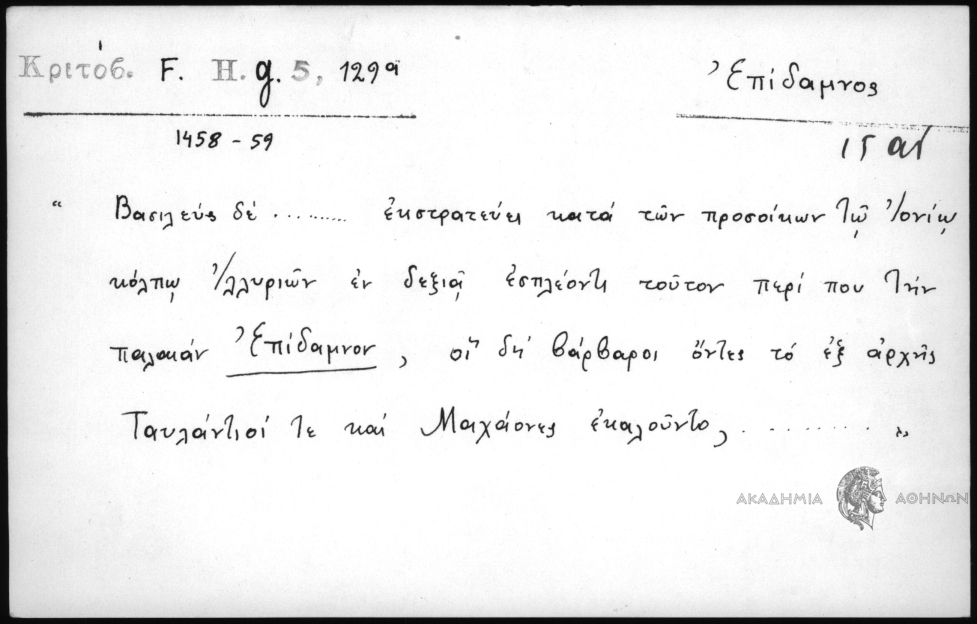 Κριτόβ. F. H. g. 5, 129α
Ἐπίδαμνος
1458 - 59
15 αἰ
“ Βασιλεύς δέ .......... ἐκστρατεύει κατά τῶν προσοίκων τῷ Ἰονίῳ
κόλπῳ Ἰλλυριῶν ἐν δεξιᾷ ἐσπλέοντι τοῦτον περί που τήν
παλαιάν Ἐπίδαμνον, οἵ δή βάρβαροι ὄντες τό ἐξ ἀρχῆς
Ταυλάντιοί τε καί Μαχάονες ἐκαλοῦντο, .......... „
ΑΚΑΔΗΜΙΑ ΑΘΗΝΩΝ